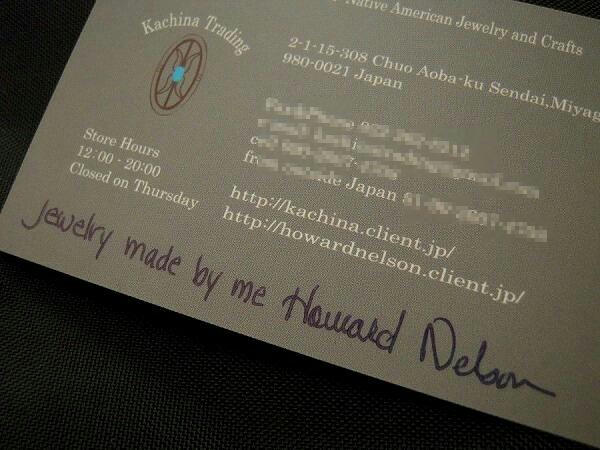 Native American Jewelry and Crafts
Kachina Trading
2-1-15-308 Chuo Aoba-ku Sendai,Miyag
980-0021 Japan
Store Hours
12:00 - 20:00
Closed on Thursday
Japan
http://kachina.client.jp/
http://howardnelson.client.jp/
Jewelry made by me Howard Nelson